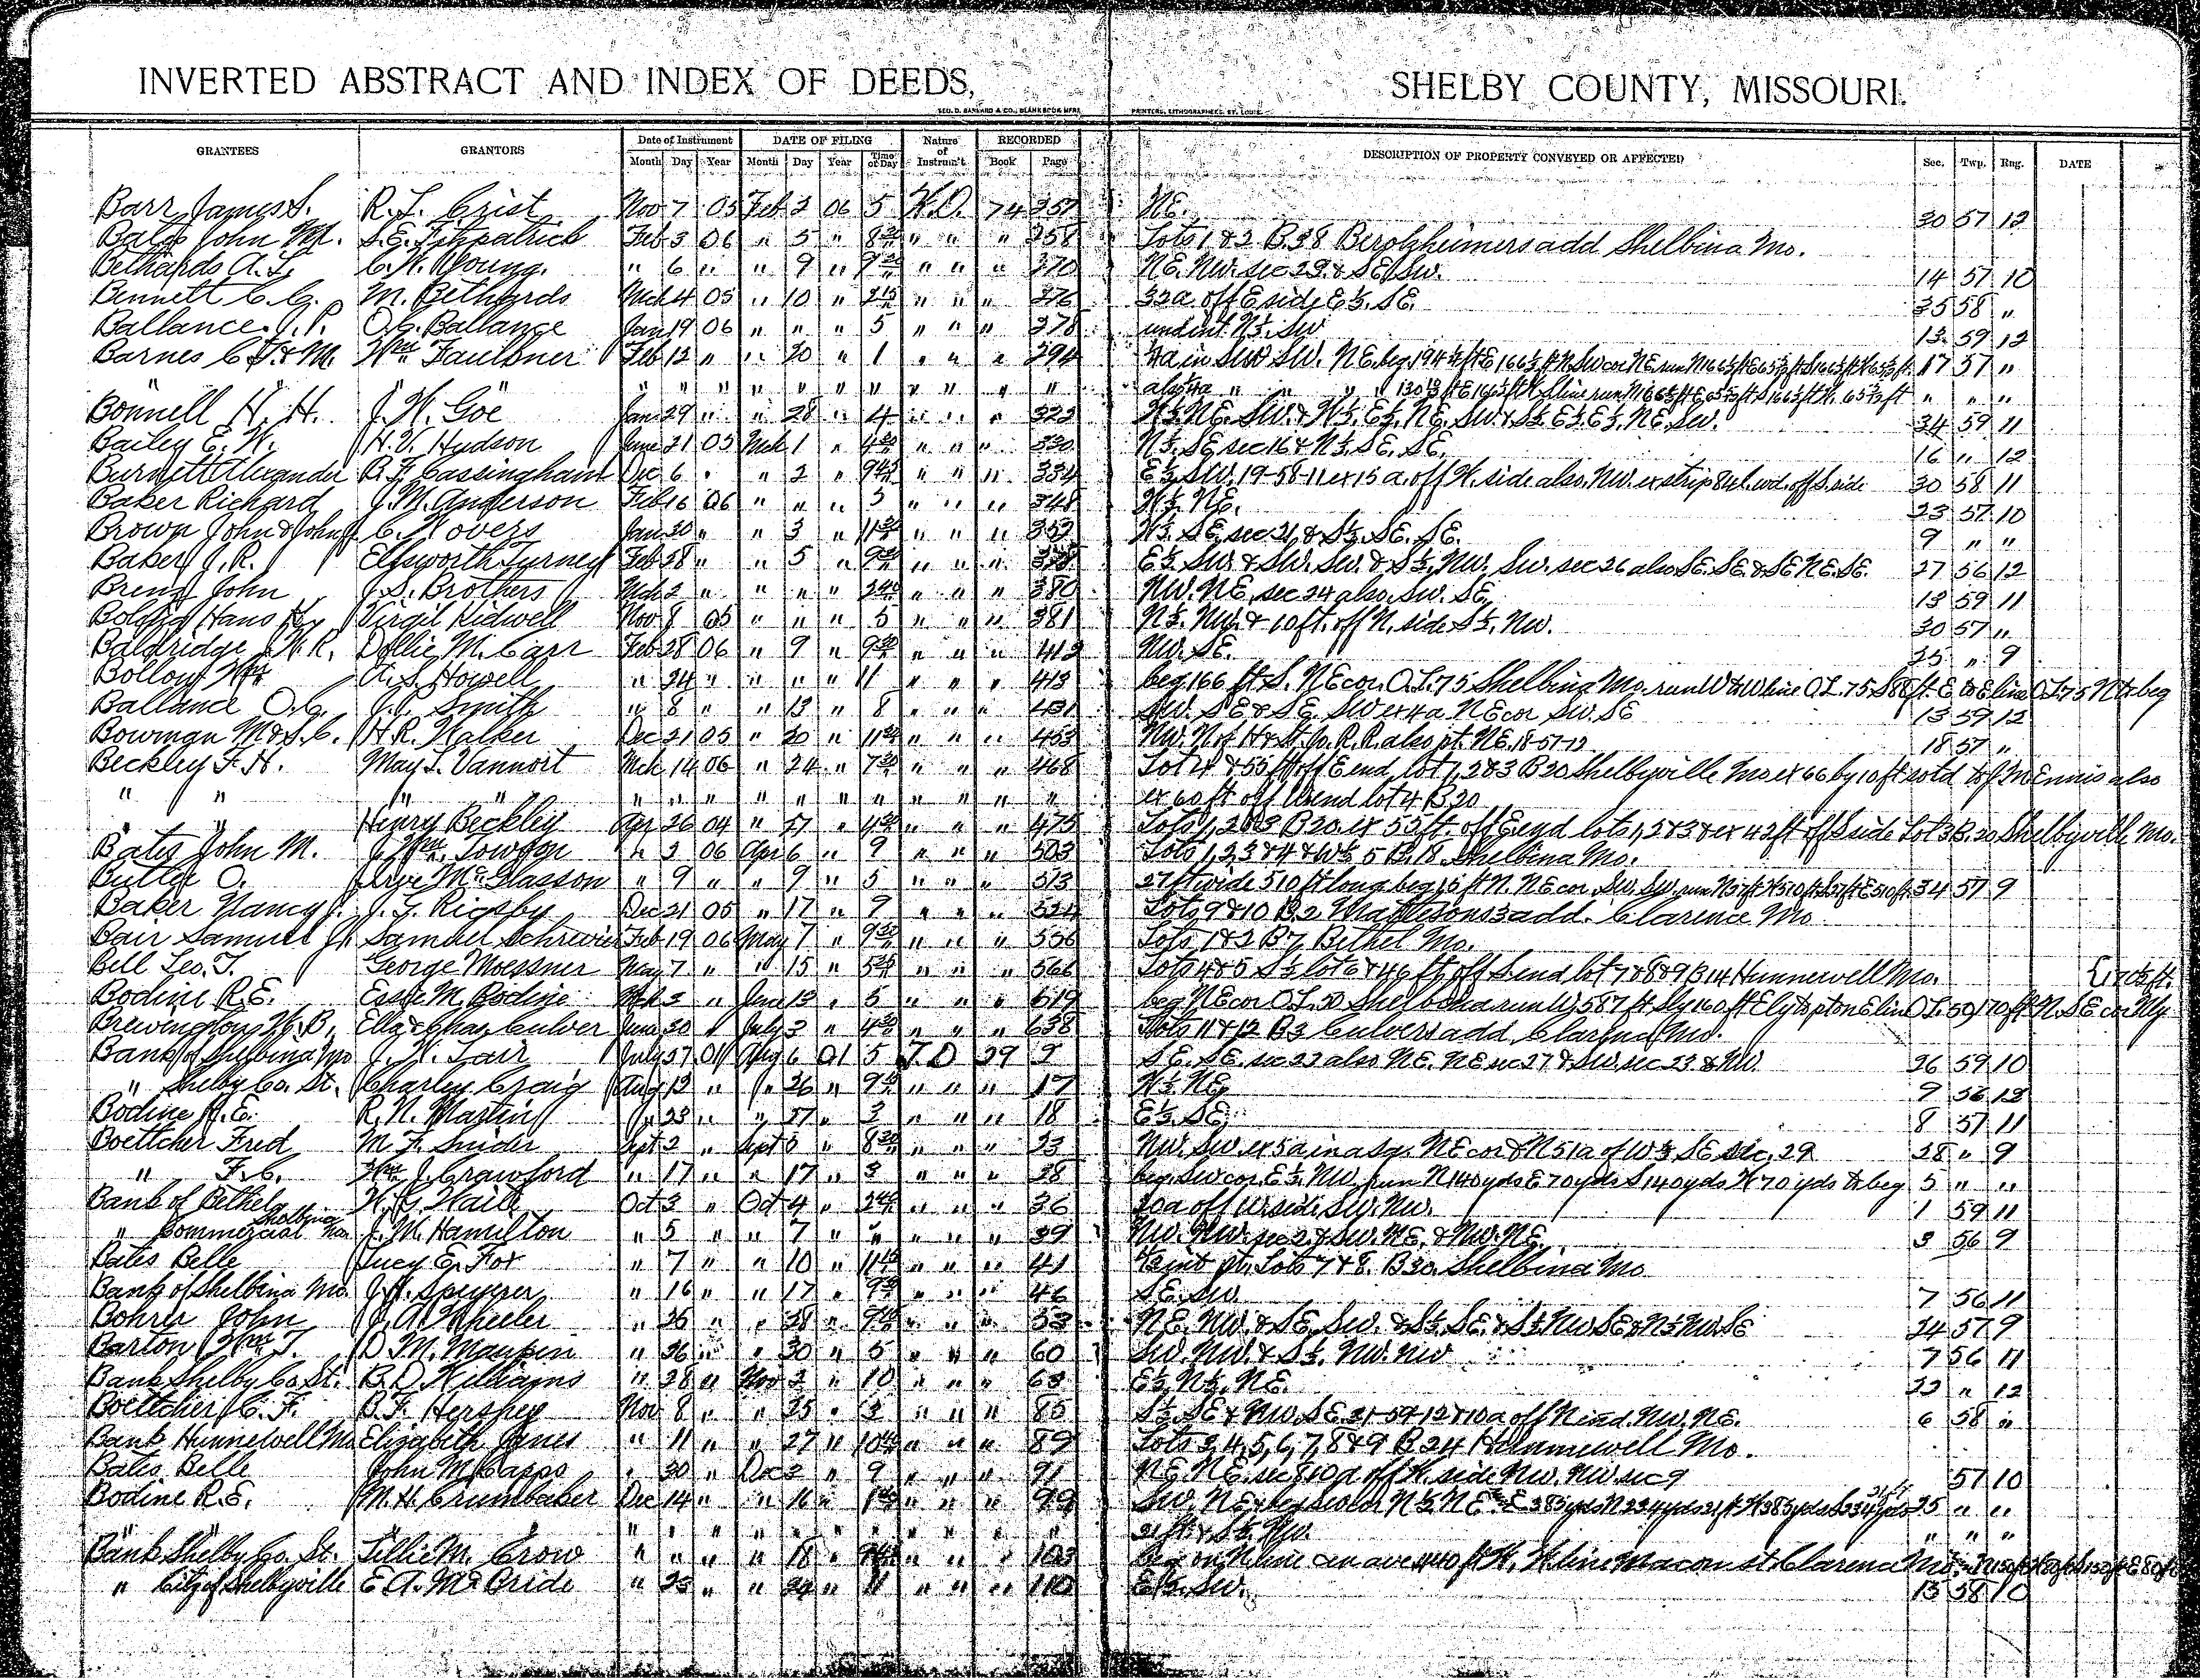 INVERTED ABSTRACT AND INDEX OF DEEDS, SHELBY COUNTY, MISSOURI.
GEO. D. BARNARD & CO., BLANK BOOK MFRS. PRINTERS, LITHOGRAPHERS, ST. LOUIS.
GRANTEES GRANTORS Date of Instrument DATE OF FILING Nature of Instrum't RECORDED DESCRIPTION OF PROPERTY CONVEYED OR AFFECTED Sec. Twp. Rng. DATE
Month Day Year Month Day Year Time of Day Book Page
Barr James S. R. L. Crist Nov 7 05 Feb 2 06 5 W.D. 74 257 NE. 30 57 12
Bates John M. S.E. Fitzpatrick Feb 3 06 " 5 " 8 " " " 258 Lots 1 & 2 B.38 Bergheimers add Shelbina Mo.
Bethards A.L. C.W. Young. " 6 " " 9 " 9 " " " 270 NE. NW. sec 23 & SE. SW. 14 57 10
Bennett C.C. M. Bethards Mch 4 05 " 10 " 2 15 " " " 276 32a. off E side E½. SE. 35 58 "
Ballance J.P. O.C. Ballance Jan 19 06 " " " 5 " " " 278 und int N½. SW 13 59 12
Barnes C.F. & M. Wm Faulkner Feb 12 " " 20 " 1 " " " 294 17 57 "
" " " " " " " " " " " " " " " " " "
Bonnell H. H. J. W. Goe Jan 29 " " 28 " 4 " " " 322 W½. NE. SW. & W½. E½. NE. SW. & S½. E½. E½. NE. SW. 34 59 11
Bailey E. W. H.V. Hudson June 21 05 Mch 1 " 4 30 " " " 330 N½. SE sec 16 & N½. SE. SE. 16 " 12
Burnett Alexander B.F. Cassingham Dec 6 " " 2 " 9 45 " " " 334 E½. SW. 19-58-11 ex 15 a. off W. side also. NW. ex strip 84 l. wd. off S. side 30 58 11
Baker Richard J. M. Anderson Feb 16 06 " " " 5 " " " 348 W½. NE. 23 57 10
Brown John & John J. C. Jan 30 " " 3 " 11 30 " " " 353 N½. SE sec 21, & S½. SE. SE. 9 " "
Baker J. R. Ellsworth Turner Feb 28 " " 5 " 9 " " " E½. SW. & SW. SW. & S½. NW. SW. sec 26 also SE. SE. & SE NE. SE. 27 56 12
Breng John J. S. Brothers Mch 2 " " " " 2 40 " " " 380 NW. NE. sec 24 also. SW. SE. 13 59 11
Hans H. Virgil Kidwell Nov 8 05 " " " 5 " " " 381 N½. NW. & 10 ft. off N. side S½. NW. 30 57 "
Baldridge W. R. Dollie M. Carr Feb 28 06 " 9 " 9 30 " " " 412 NW. SE. 25 " 9
Bollow Wm A. S. Howell " 24 " " " " 11 " " " 413 beg 166 ft S. NE cor. O.L. 75 Shelbina Mo. run W to W line O.L. 75 S 88 ft. E to E line O.L. 75 N to beg
Ballance O.C. J.P. Smith " 8 " " 13 " 8 " " " 431 SW. SE & SE SW ex 4 a NE cor SW. SE 13 59 12
Bowman M & S.C. H.R. Walker Dec 21 05 " 20 " 11 30 " " " 453 NW. N. of H & St. Jo. R.R. also pt. NE. 18-57-12 18 57 "
Beckley F.H. May L. Vannort Mch 14 06 " 24 " 7 30 " " " 468 Lot 4 & 55 ft off E end lot 1, 2 & 3 B 20 Shelbyville Mo ex 66 by 10 ft sold to J M Ennis also
" " " " " " " " " " " " " " " ex 60 ft off W end lot 4 B 20
" " Henry Beckley Apr 26 04 " 27 " 4 30 " " " 475 Lots 1, 2 & 3 B 20. ex 55 ft. off E end lots 1, 2 & 3 & ex 42 ft off S side Lot 3 B. 20 Shelbyville Mo.
Bates John M. J. Wm. Towson " 3 06 Apr 6 " 9 " " " 503 Lots 1, 2, 3 & 4 & W½ 5 B. 18. Shelbina Mo.
Butler O. McGlasson " 9 " " 9 " 5 " " " 513 27 ft wide 510 ft long beg 16 ft N. NE cor. SW. SW. run N 27 ft W 510 ft S 27 ft E 510 ft. 34 57 9
Baker Nancy J. J. Y. Rigsby Dec 21 05 " 17 " 9 " " " 524 Lots 9 & 10 B 2 add. Clarence Mo
Bair Samuel J. Samuel Schrewis Feb 19 06 May 7 " 9 30 " " " 556 Lots 1 & 2 B 7 Bethel Mo.
Bell Leo. T. George Moessner May 7 " " 15 " 5 " " " 566 Lots 4 & 5 S½ lot 6 & 46 ft off S end lot 7 & 8 & 9 B 14 Hunnewell Mo.
Bodine R. E. Essie M. Bodine Mch 3 " June 13 " 5 " " " 619 beg NE cor O.L. 50 Shelbina run W 587 ft Sly 160 ft Ely to pt on E line O.L. 50, 170 ft N. SE cor Nly
Brewington W. B. Ella & Chas Culver June 30 " July 3 " 4 30 " " " 638 Lots 11 & 12 B 3 Culvers add Clarence Mo.
Bank of Shelbina Mo J. W. Tarr July 27 01 Aug 6 01 5 T.D 29 2 SE. SE. sec 22 also NE. NE sec 27 & SW. sec 23 & NW. 26 59 10
" Shelby Co. St. Charley Craig Aug 12 " " 26 " 9 " " " 17 W½ NE 9 56 12
Bodine R. E. R. N. Martin " 23 " " 27 " 3 " " " 18 E½. SE. 8 57 11
Boettcher Fred M. F. Snider Sept 2 " Sept 3 " 8 30 " " " 23 NW. SW. ex 5a in a sq. NE cor & N 51a of W½ SE sec. 29 28 " 9
" F.C. Wm J. Crawford " 17 " " 17 " 3 " " " 28 beg. SW cor. E½. NW. run N 140 yds E 70 yds S 140 yds W 70 yds to beg 5 " "
Bank of Bethel W. G. Haile Oct 3 " Oct 4 " 2 40 " " " 36 20a off W side SW. NW. 1 59 11
" Commercial Shelbina J. M. Hamilton " 5 " " 7 " " " " " 39 NW. NW. sec 2 & SW. NE. & NW. NE. 3 56 9
Bates Belle Lucy E. Fox " 7 " " 10 " 11 45 " " " 41 ½ int pt. Lots 7 & 8. B 30. Shelbina Mo
Bank of Shelbina Mo. J. H. " 16 " " 17 " 9 30 " " " 46 SE. SW. 7 56 11
Bohrer John J. A. Wheeler " 25 " " 28 " " " " 53 NE. NW. & SE. SW. & S½. SE. & S½ NW SE & N½ NW. SE 24 57 9
Barton Wm. T. D. M. Maupin " 26 " " 30 " 5 " " " 60 SW. NW. & S½. NW. NW 7 56 11
Bank Shelby Co. St. B. D. Williams " 28 " Nov 2 " 10 " " " 63 E½. N½. NE. 22 " 12
Boettcher C. F. B. F. Hershey Nov 8 " " 25 " 3 " " " 85 S½. SE & NW. SE. 31-59-12 & 10a off N end. NW. NE. 6 58 "
Bank Hunnewell Mo Elizabeth Janes " 11 " " 27 " 10 " " " 89 Lots 3, 4, 5, 6, 7, 8 & 9 B 24 Hunnewell Mo.
Bates Belle John M. Capps " 30 " Dec 2 " 9 " " " 91 NE. NE. sec 8 10a off W. side NW. NW sec 9 57 10
Bodine R. E. M. H. Crumbaker Dec 14 " " 16 " 1 " " " 99 25 " "
" " " " " " " " " " " " " " " 21 ft. & S½. NW. " " "
Bank Shelby Co. St. Lillie M. Crow " " " " 18 " 9 45 " " " 103
" City of Shelbyville E. A. McBride " 23 " " 24 " 11 " " " 110 E½. SW. 13 58 10